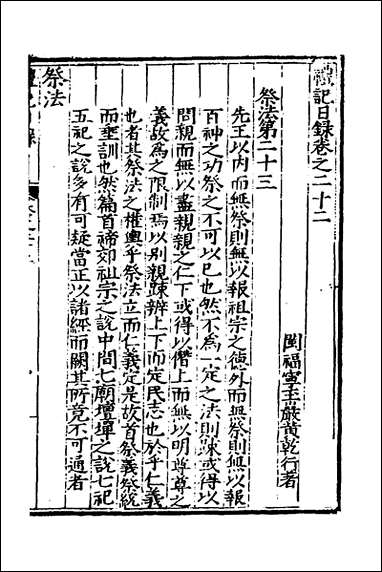 禮記日録卷之二十二
閩福寧玉巖黄乾行著
祭法第二十三
先王以内而無祭則無以報祖宗之德外而無祭則無以報
百神之功祭之不可以已也然不為一定之法則踈或得以
間親而無以盡親親之仁下或得以僭上而無以明尊尊之
義故為之限制焉以别親踈辨上下而定民志也於乎仁義
也者其祭法之權輿乎祭法立而仁義定是故首祭義祭統
而垂訓也然篇首禘郊祖宗之說中間七廟壇墠之說七祀
五祀之說多有可疑當正以諸經而闕其所竟不可通者
祭法